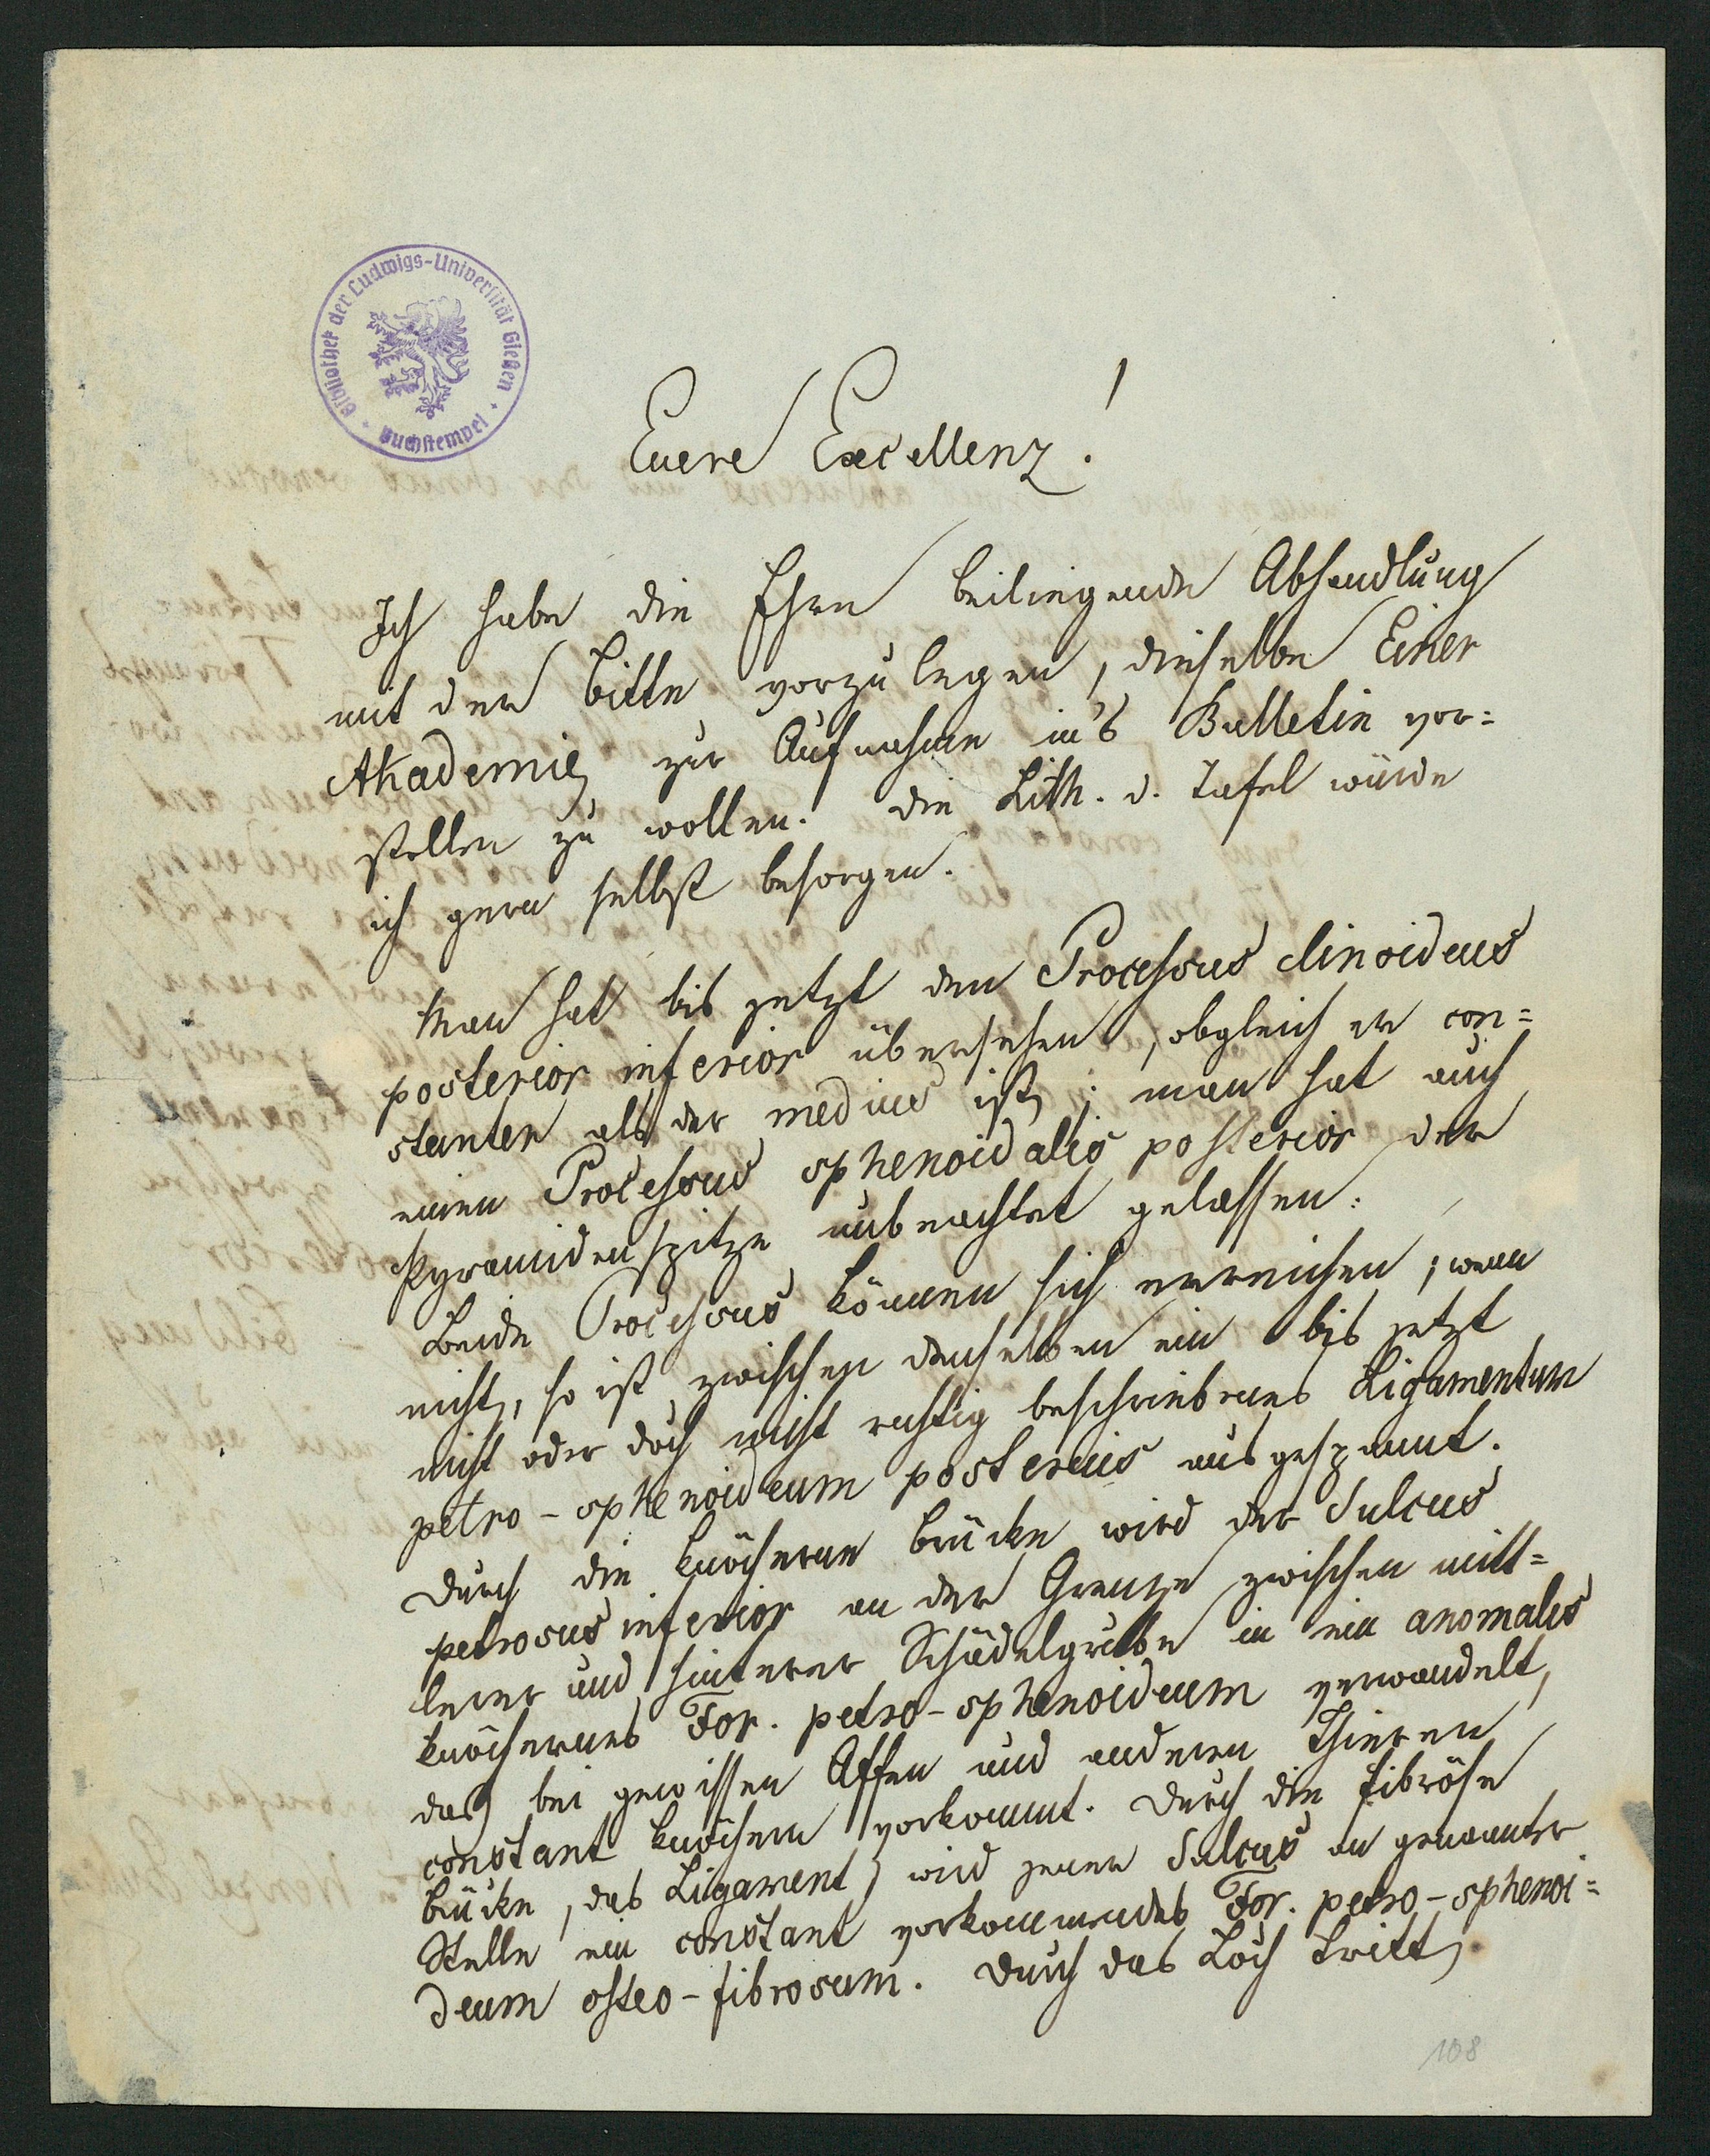 Bibliothek der Ludwigs-Universität Gießen
Buchstempel
Euere Excellenz!
Ich habe die Ehre beiliegende Abhandlung
mit der Bitte vorzulegen, dieselbe Einer
Akademie zur Aufnahme in's Bulletin vor=
stellen zu wollen. Die Lith. d. Tafel würde
ich gern selbst besorgen.
Man hat bis jetzt den Processus clinoideus
posterior inferior übersehen, obgleich er con=
stanter als der medius ist; man hat auch
einen Processus sphenoidalis posterior der
Pyramidenspitze unbeachtet gelassen.
Beide Processus können sich erreichen; wenn
nicht, so ist zwischen denselben ein bis jetzt
nicht oder doch nicht richtig beschriebenes Ligamentum
petro-sphenoideum posterius ausgespannt.
Durch die knöcherne Brücke wird der Sulcus
petrosus inferior an der Grenze zwischen mitt=
lerer und hinterer Schädelgrube in ein anomales
knöchernes For. petro-sphenoideum verwandelt,
das bei gewissen Affen und anderen Thieren
constant knöchern vorkommt. Durch die fibröse
Brücke, das Ligament, wird jener Sulcus an genannter
Stelle ein constant vorkommendes For. petro-sphenoi=
deum osteo-fibrosum. Durch das Loch tritt
108